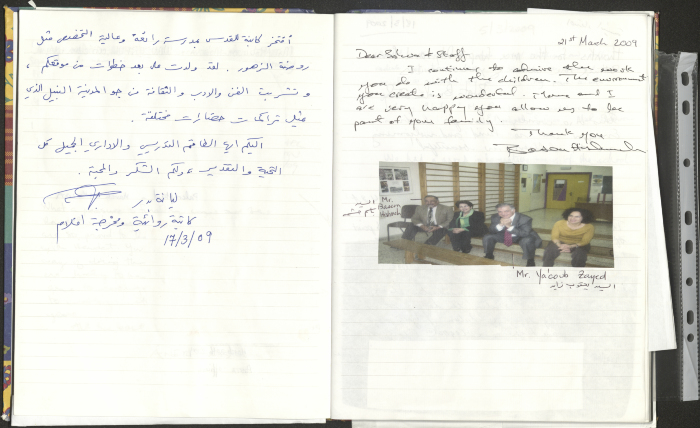 أفتخر كابنة للقدس بمدرسة رائعة وعالية التخصص مثل
روضة الزهور . لقد ولدت على بعد خطوات من موقعكم ،
وتشربت الفن والأدب والثقافة من جو المدينة النبيل الذي
مثل تراكمات حضارات مختلفة .
اليكم ايها الطاقم التدريسي والاداري الجميل كل
التحية والتقدير ، ولكم الشكر والمحبة .
ليانة بدر
كاتبة روائية ومخرجة افلام
17/3/09
21st March 2009
Dear & Staff
I continue to admire the work
you do with the children. The enviroment
you create is wonderful. and I
are very happy you allow us to be
part of your family.
Thank you
السيد
Mr.
Mr. Ya'coub Zayed
السيد يعقوب زايد